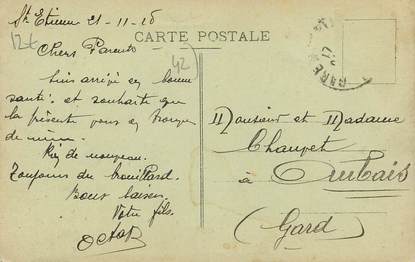 St Etienne 21-11-18
12€
CARTE POSTALE
Chers Parents
42
Suis arrivé en bonne
santé. et souhaite que
la présente vous en trouve
de même.
Rien de nouveau.
Toujours du brouillard.
Bons baisers
Votre fils.
GARE
Monsieur et Madame
Chauvet
à Aubais
(Gard)